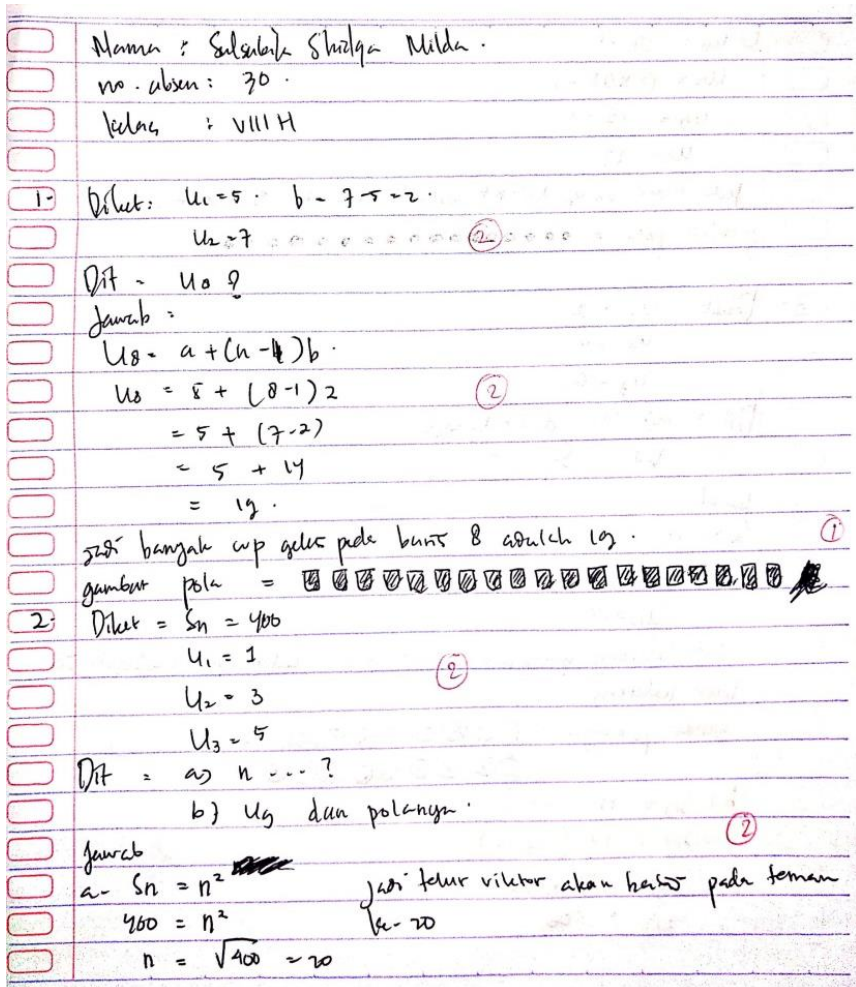 Nama : Salsabila Shidqa Milda .
no. absen : 30 .
kelas : VIII H
1- Diket : U₁ = 5 . b = 7-5=2 .
U₂ = 7 ②
Dit = U8 ?
Jawab :
U8 = a + (n - 1) b .
U8 = 5 + (8-1) 2 ②
= 5 + (7.2)
= 5 + 14
= 19 .
jadi banyak cup gelas pada baris 8 adalah 19 . ①
gambar pola =
2. Diket = Sn = 400
U₁ = 1 ②
U₂ = 3
U₃ = 5
Dit = a) n ... ?
b) U9 dan polanya .
②
Jawab
a- Sn = n² jadi telur viktor akan habis pada teman
400 = n² ke-20
n = √400 = 20